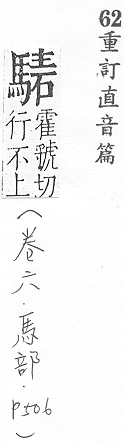 62 重訂直音篇
騞
霍虢切
行不上
(卷六．馬部．P506)